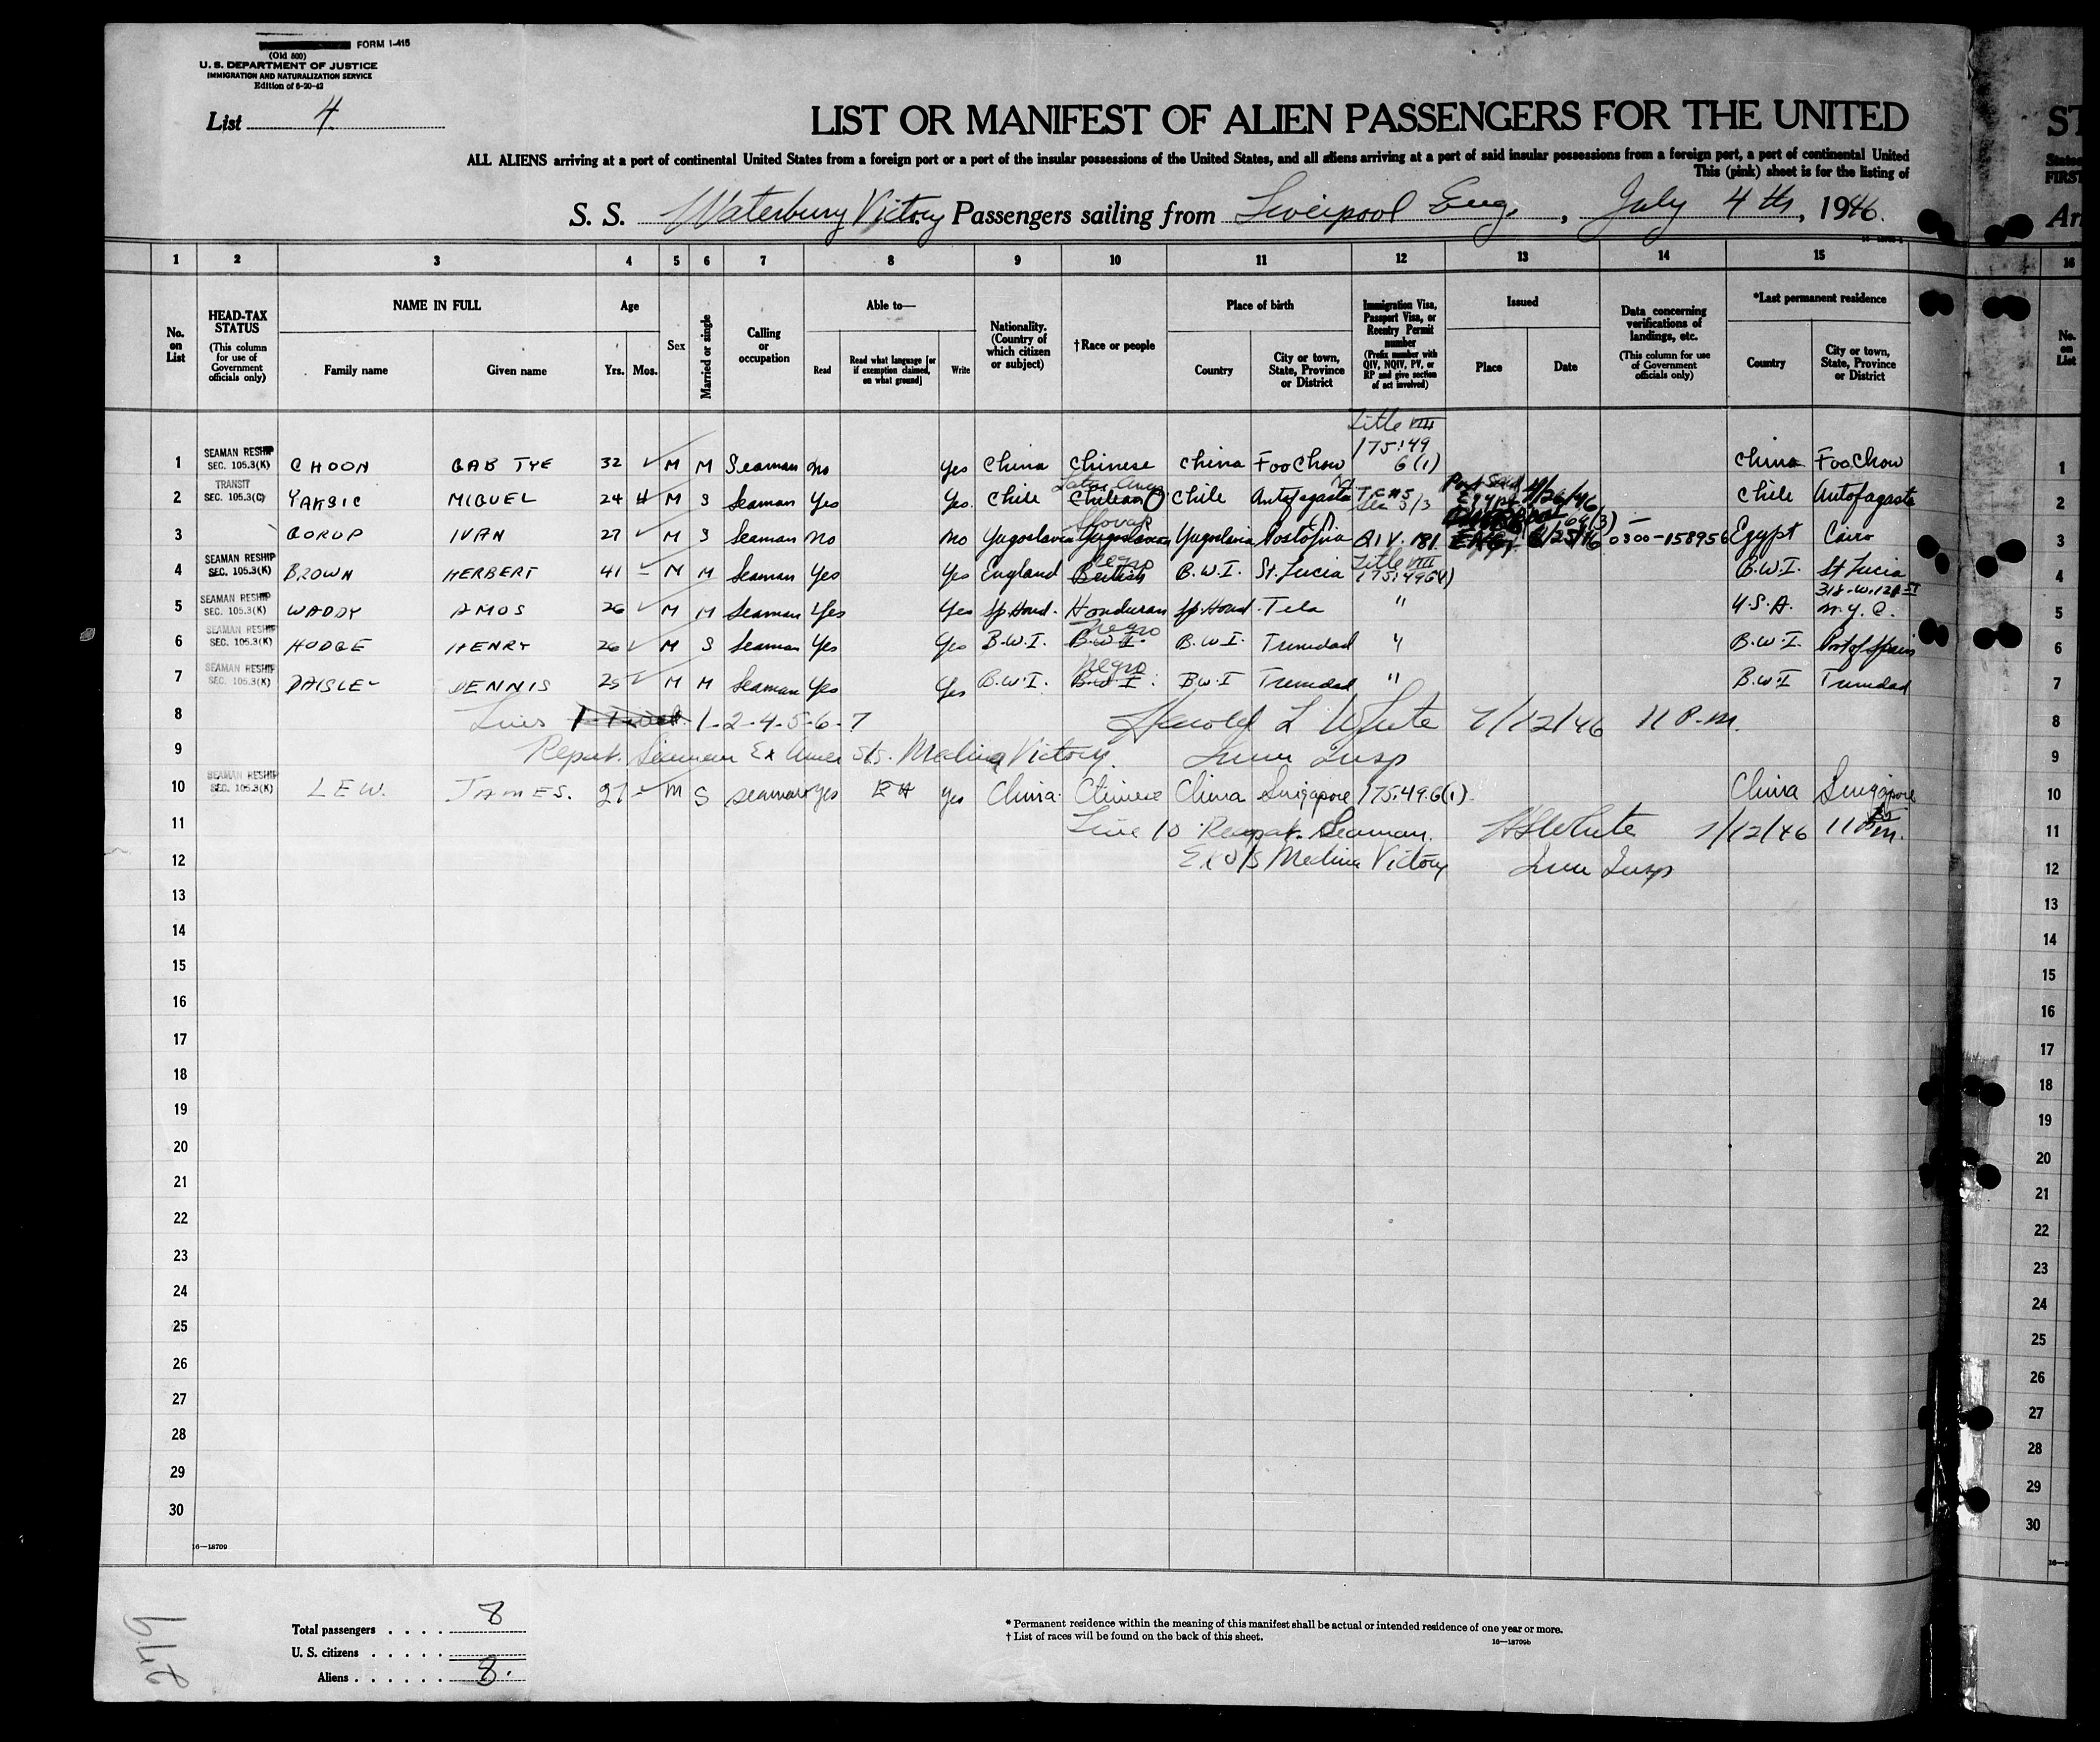 FORM I-415
(Old 500)
U. S. DEPARTMENT OF JUSTICE
IMMIGRATION AND NATURALIZATION SERVICE
Edition of 6-20-42
List 4
LIST OR MANIFEST OF ALIEN PASSENGERS FOR THE UNITED
ALL ALIENS arriving at a port of continental United States from a foreign port or a port of the insular possessions of the United States, and all aliens arriving at a port of said insular possessions from a foreign port, a port of continental United
This (pink) sheet is for the listing of
S. S. Waterbury Victory Passengers sailing from Liverpool Eng., July 4th, 1946.
1 2 3 4 5 6 7 8 9 10 11 12 13 14 15 16
No. on List
HEAD-TAX STATUS (This column for use of Government officials only)
NAME IN FULL
Family name Given name
Age
Yrs. Mos.
Sex
Married or single
Calling or occupation
Able to—
Read Read what language [or if exemption claimed, on what ground] Write
Nationality. (Country of which citizen or subject)
†Race or people
Place of birth
Country City or town, State, Province or District
Immigration Visa, Passport Visa, or Reentry Permit number (Prefix number with QIV, NQIV, PV, or RP and give section of act involved)
Issued
Place Date
Data concerning verifications of landings, etc. (This column for use of Government officials only)
*Last permanent residence
Country City or town, State, Province or District
No. on List
Title VIII
175:49
1 SEAMAN RESHIP SEC. 105.3(K) CHOON GAB TYE 32 M M Seaman no yes China Chinese China FooChow 6(1) China FooChow 1
2 TRANSIT SEC. 105.3(C) YAKSIC MIGUEL 24 M S Seaman Yes Yes. Chile Chilean Chile Antofagasta Sec 3/3 Port Said Egypt 4/26/46 Chile Antofagasta 2
Slovak
3 GORUP IVAN 27 M S Seaman No No Yugoslavia Yugoslavian Yugoslavia Postojna QIV. 181 ENG. 0300-158956 Egypt Cairo 3
Negro Title VIII
4 SEAMAN RESHIP SEC. 105.3(K) BROWN HERBERT 41 M M Seaman Yes Yes England British B.W.I. St. Lucia 175:496(1) B.W.I. St Lucia 4
318-W.121 ST
5 SEAMAN RESHIP SEC. 105.3(K) WADDY AMOS 26 M M Seaman Yes Yes Sp.Hond. Honduran Sp.Hond. Tela " U.S.A. N.Y.C. 5
Negro
6 SEAMAN RESHIP SEC. 105.3(K) HODGE HENRY 26 M S Seaman Yes Yes B.W.I. B.W.I. B.W.I. Trinidad " B.W.I. Port of Spain 6
Negro
7 SEAMAN RESHIP SEC. 105.3(K) PAISLEY DENNIS 25 M M Seaman Yes Yes B.W.I. B.W.I. B.W.I Trinidad " B.W.I Trinidad 7
8 Lines 1-2-4-5-6-7 Harold L White 7/12/46 11 P.M. 8
9 Repat. Seaman Ex Amer S/S. Medina Victory. Imm Insp 9
10 SEAMAN RESHIP SEC. 105.3(K) LEW. JAMES. 27 M S seaman yes yes China. Chinese China Singapore 175:49.6(1). China Singapore 10
11 Line 10 Repat. Seaman. HLWhite 7/12/46 11 Pm. 11
12 Ex S/S Medina Victory Imm Insp 12
13 13
14 14
15 15
16 16
17 17
18 18
19 19
20 20
21 21
22 22
23 23
24 24
25 25
26 26
27 27
28 28
29 29
30 30
16—18709
Total passengers . . . . 8
U. S. citizens . . . . .
Aliens . . . . . . 8.
* Permanent residence within the meaning of this manifest shall be actual or intended residence of one year or more.
† List of races will be found on the back of this sheet.
16—18709b